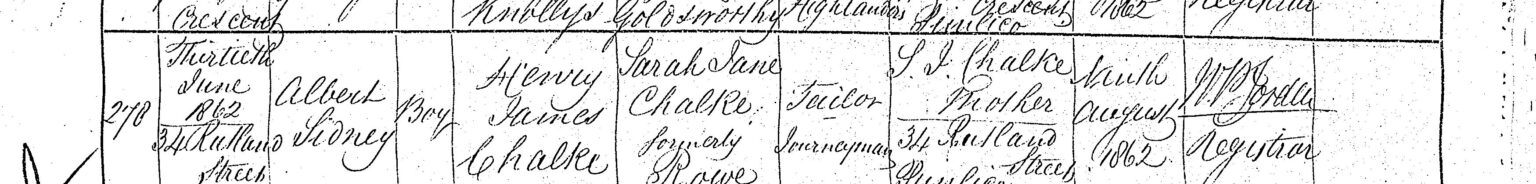 Crescent
Knollys
Goldsworthy
Highlanders
Crescent
Pimlico
1862
Registrar
278
Thirtieth
June
1862
34 Rutland
Street
Albert
Sidney
Boy
Henry
James
Chalke
Sarah Jane
Chalke
formerly
Rowe
Tailor
Journeyman
S. J. Chalke
Mother
34 Rutland
Street
Pimlico
Ninth
August
1862
Registrar